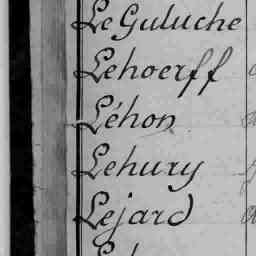 Le Guluche
Lehoerff
Léhon
Lehury
Lejard